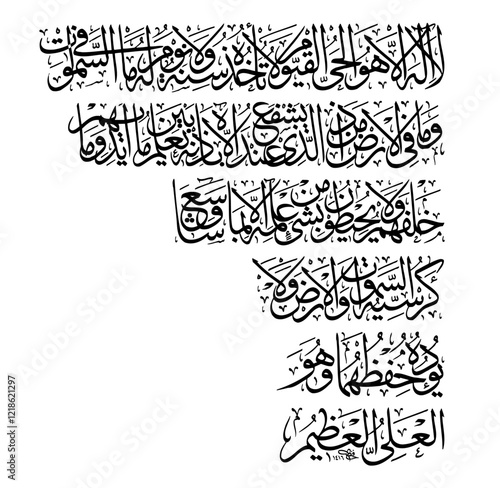 لا اله الا هو الحي القيوم لا تأخذه سنة ولا نوم له ما في السموت
وما في الارض من ذا الذي يشفع عنده الا باذنه يعلم ما بين ايديهم وما
خلفهم ولا يحيطون بشيء من علمه الا بما شاء وسع
كرسيه السموت والارض ولا
يؤده حفظهما وهو
العلي العظيم
Adobe Stock | #1218621297